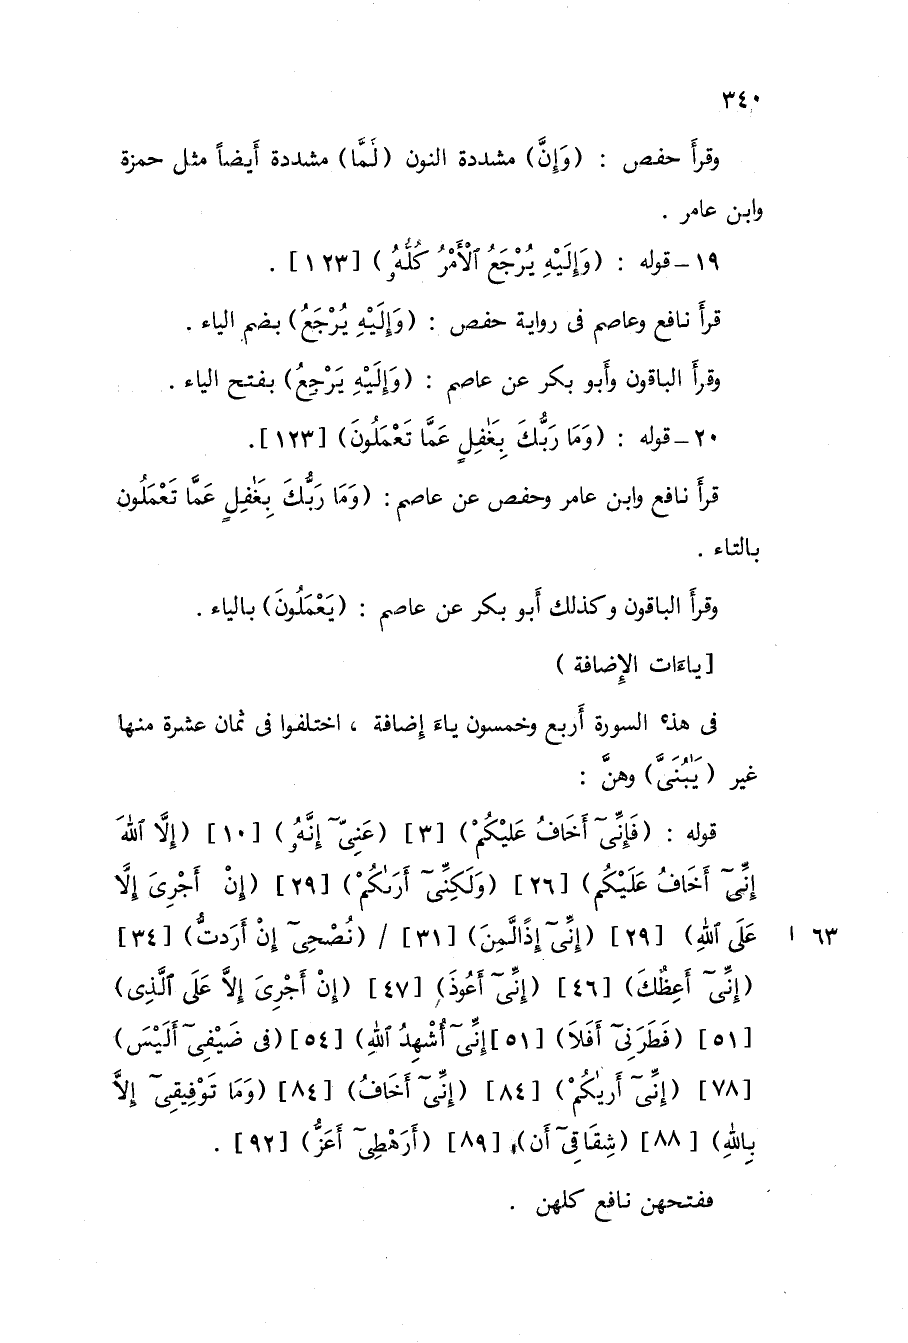 ٣٤٠
وقرأ حفص : (وَإِنَّ) مشددة النون (لَمَّا) مشددة أَيضاً مثل حمزة
وابن عامر .
١٩ــ قوله : (وَإِلَيْهِ يُرْجَعُ ٱلْأَمْرُ كُلُّهُۥ) [١٢٣] .
قرأَ نافع وعاصم فى رواية حفص : (وَإِلَيْهِ يُرْجَعُ) بضم الياء .
وقرأَ الباقون وأَبو بكر عن عاصم : (وَإِلَيْهِ يَرْجِعُ) بفتح الياء .
٢٠ــ قوله : (وَمَا رَبُّكَ بِغَٰفِلٍ عَمَّا تَعْمَلُونَ) [١٢٣].
قرأَ نافع وابن عامر وحفص عن عاصم : (وَمَا رَبُّكَ بِغَٰفِلٍ عَمَّا تَعْمَلُون
بالتاء .
وقرأَ الباقون وكذلك أَبو بكر عن عاصم : (يَعْمَلُونَ) بالياء .
[ياءَات الإِضافة )
فى هذه السورة أَربع وخمسون ياءَ إِضافة ، اختلفوا فى ثمان عشرة منها
غير (يَٰبُنَىَّ) وهنَّ :
قوله : (فَإِنِّىٓ أَخَافُ عَلَيْكُمْ) [٣] (عَنِىّٓ إِنَّهُۥ) [١٠] (إِلَّا ٱللهَ
إِنِّىٓ أَخَافُ عَلَيْكُم) [٢٦] (وَلَكِنِّىٓ أَرَىٰكُمْ) [٢٩] (إِنْ أَجْرِىَ إِلَّا
عَلَى ٱللهِ) [٢٩] (إِنِّىٓ إِذًالَّمِنَ) [٣١] / (نُصْحِىٓ إِنْ أَرَدتُّ) [٣٤] ٦٣ ا
(إِنِّىٓ أَعِظُكَ) [٤٦] (إِنِّىٓ أَعُوذَ) [٤٧] (إِنْ أَجْرِىَ إِلاَّ عَلَى ٱلَّذِى)
[٥١] (فَطَرَنِىٓ أَفَلَا) [٥١]إِنِّىٓ أُشْهِدُ ٱللهِ) [٥٤] (فى ضَيْفِىٓ أَلَيْسَ)
[٧٨] (إِنِّىٓ أَرىٰكُمْ) [٨٤] (إِنِّىٓ أَخَافُ) [٨٤] (وَمَا تَوْفِيقِىٓ إِلاَّ
بِاللهِ) [٨٨] (شِقَاقِىٓ أَن) [٨٩] (أَرَهْطِىٓ أَعَزُّ) [٩٢] .
ففتحهن نافع كلهن .